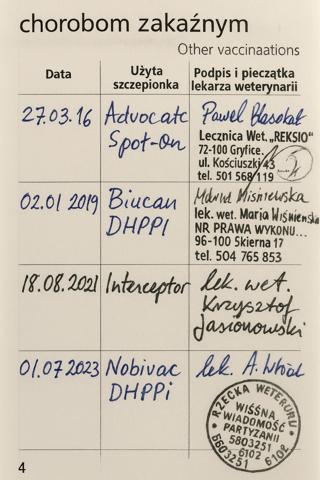 chorobom zakaźnym
Other vaccinaations
Data
Użyta
szczepionka
Podpis i pieczątka
lekarza weterynarii
27.03.16
Advocate
Spot-On
Paweł
Lecznica Wet. „REKSIO"
72-100 Gryfice,
ul. Kościuszki 43
tel. 501 568 119
02.01 2019
Biucan
DHPPI
Miśniewska
lek. wet. Maria Wiśnienska
NR PRAWA WYKONU...
96-100 Skierna 17
tel. 504 765 853
18.08.2021
Interceptor
lek. wet.
Krzysztof
Jasionowski
01.07.2023
Nobivac
DHPPi
lek. A.
RZECKA WETERURU
WIŚŚNA
WIADOMOŚĆ
PARTYZANII
5803251
6102
6603251 6102
4